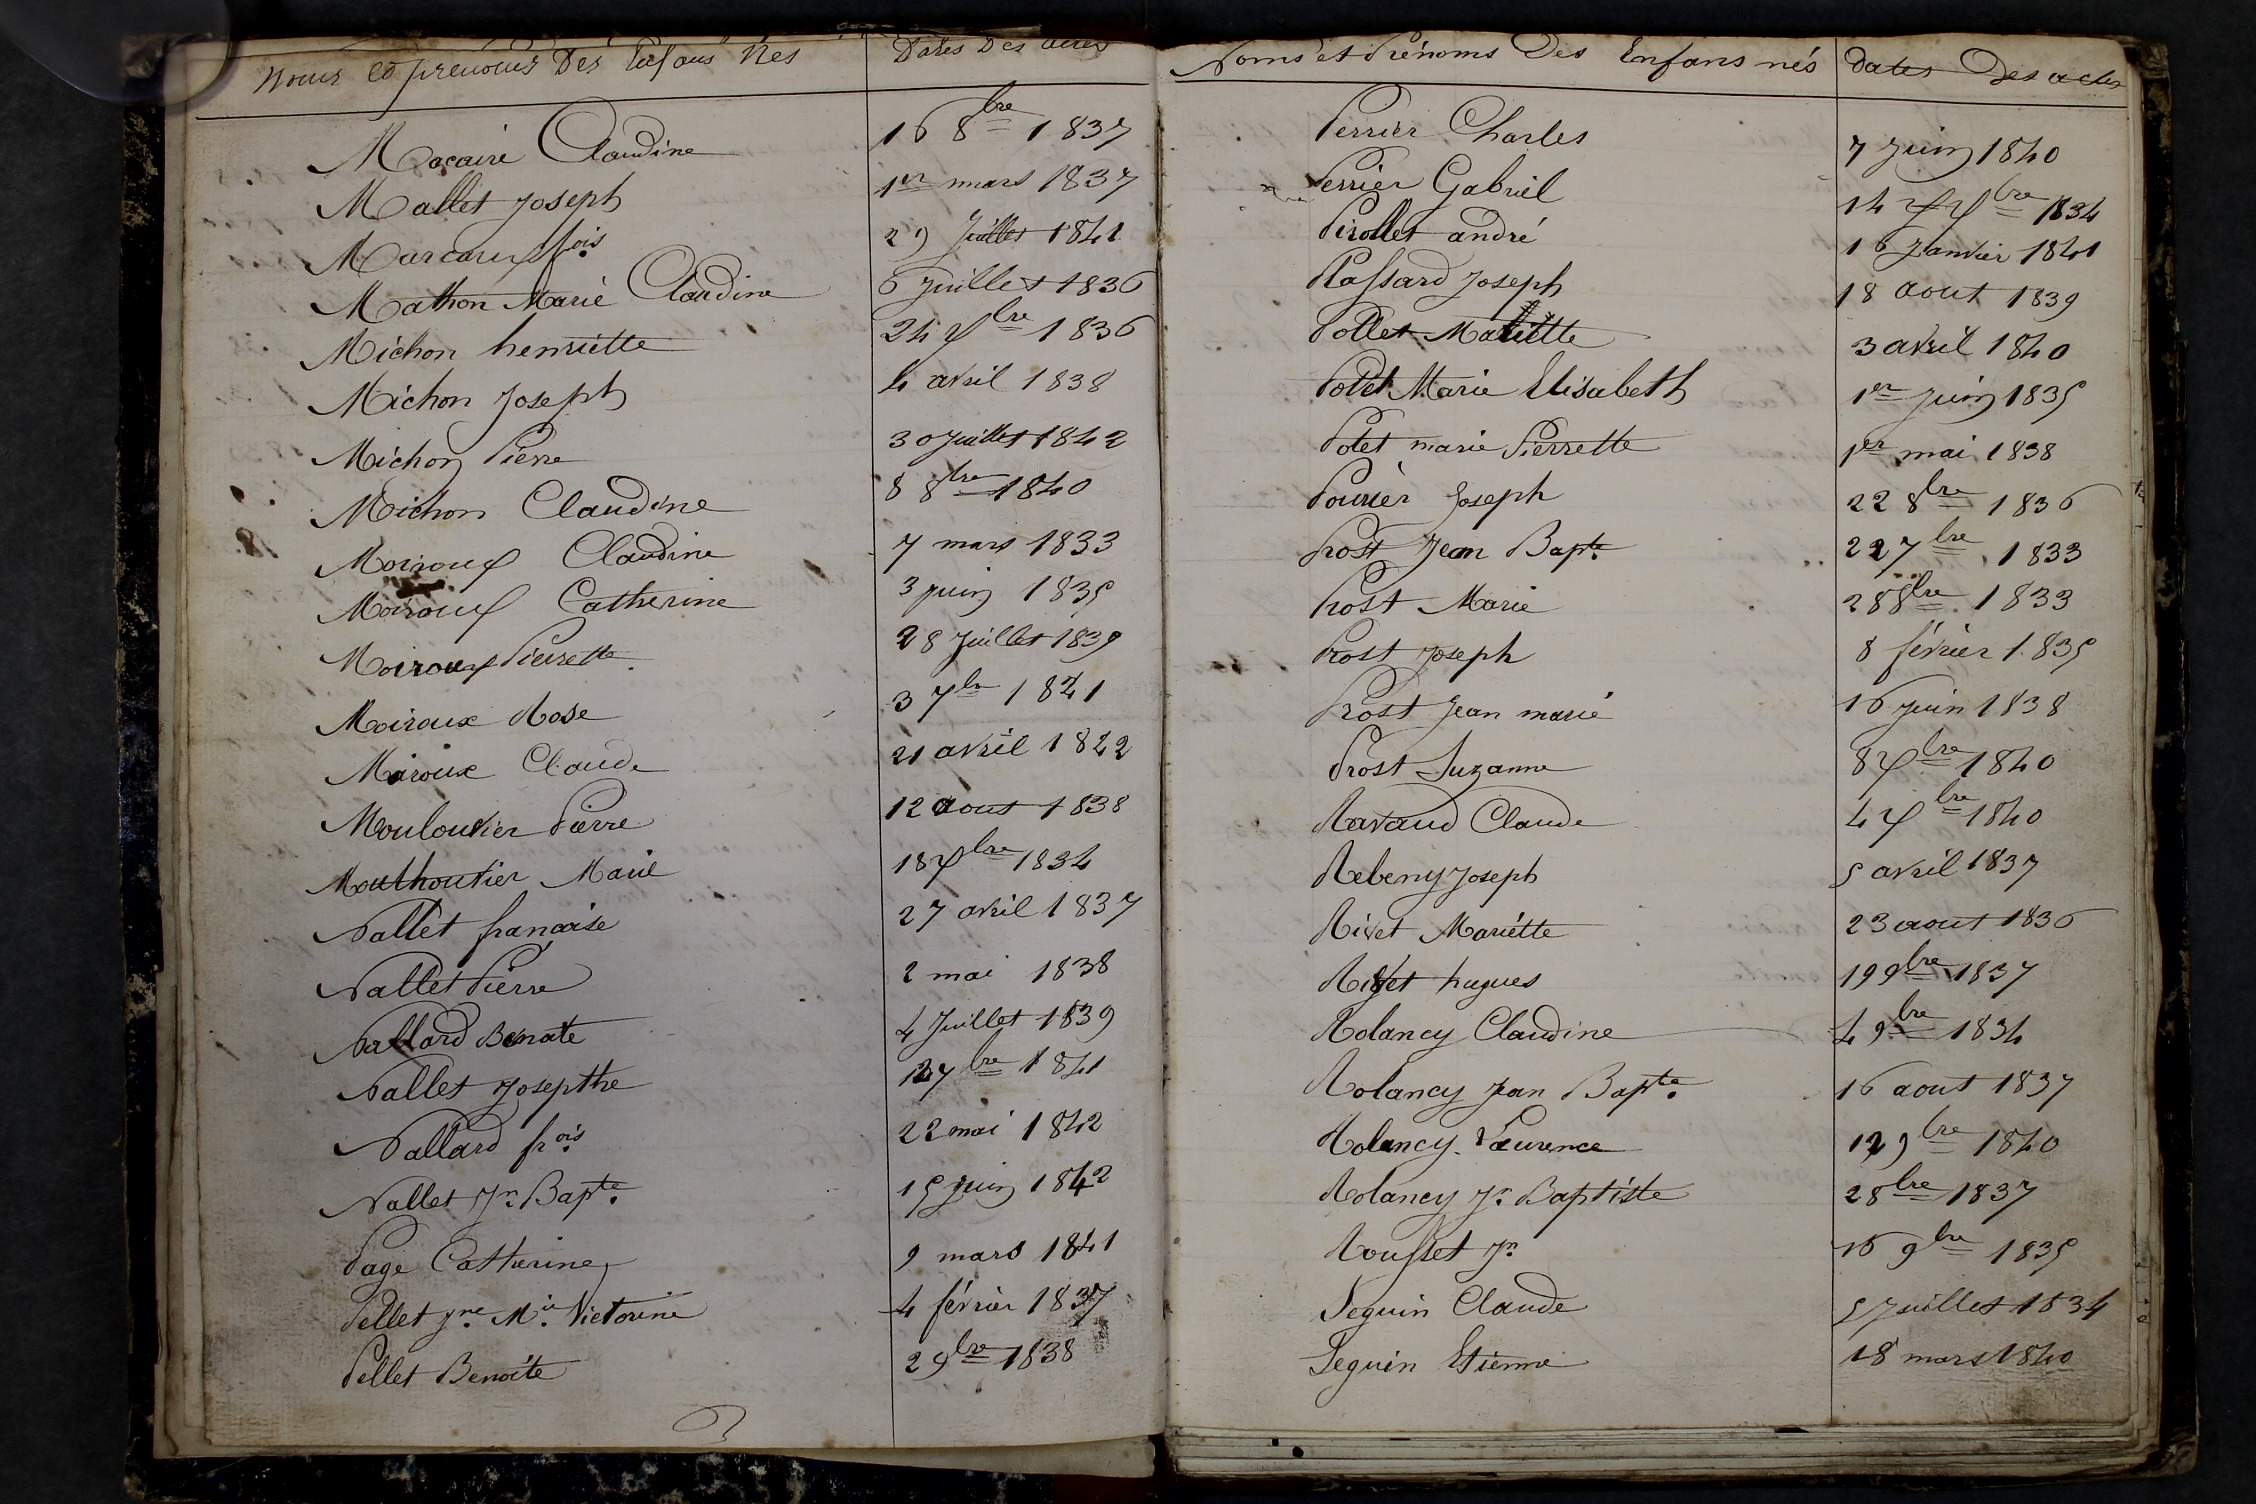 Noms et prénoms Des Enfans Nés | Dates Des actes
Macaire Claudine | 16 8bre 1837
Mallet Joseph | 1er mars 1837
Marcaux fois | 29 Juillet 1841
Mathon Marie Claudine | 6 Juillet 1836
Michon henriette | 24 Xbre 1836
Michon Joseph | 4 avril 1838
Michon Pierre | 30 Juillet 1842
Michon Claudine | 8 8bre 1840
Moiroux Claudine | 7 mars 1833
Moiroux Catherine | 3 juin 1835
Moiroux Pierrette | 28 Juillet 1839
Moiroux Rose | 3 7bre 1841
Moiroux Claude | 21 avril 1842
Mouloutier Pierre | 12 aout 1838
Mouthoutier Marie | 18 Xbre 1834
Nallet francoise | 27 avril 1837
Nallet Pierre | 2 mai 1838
Nallard Benoite | 4 Juillet 1839
Nallet Josepthe | 7bre 1841
Nallard frois | 22 mai 1842
Nallet Jn Bapte | 15 juin 1842
Page Catherine | 9 mars 1841
Pellet Jne Mie Victorine | 4 février 1837
Pellet Benoite | 2 9bre 1838
Noms et Prénoms Des Enfans nés | Dates Des actes
Perrier Charles | 7 Juin 1840
Perrier Gabriel | 14 Xbre 1834
Pirollet andré | 16 Janvier 1841
Plassard Joseph | 18 aout 1839
Pollet Mariette | 3 avril 1840
Potet Marie Elisabeth | 1er Juin 1835
Potet marie Pierrette | 1er mai 1838
Pourier Joseph | 22 8bre 1836
Prost Jean Bapte | 22 7bre 1833
Prost Marie | 28 8bre 1833
Prost Joseph | 8 février 1835
Prost Jean marie | 16 juin 1838
Prost Suzanne | 8 Xbre 1840
Ravaud Claude | 4 Xbre 1840
Rebeny Joseph | 5 avril 1837
Rivet Mariette | 23 aout 1836
Rivet hugues | 19 9bre 1837
Rolancy Claudine | 4 9bre 1834
Rolancy Jean Bapte | 16 aout 1837
Rolancy Laurence | 12 9bre 1840
Rolancy Jn Baptiste | 2 8bre 1837
Rousset Jn | 16 9bre 1835
Seguin Claude | 5 Juillet 1834
Seguin Etienne | 18 mars 1840